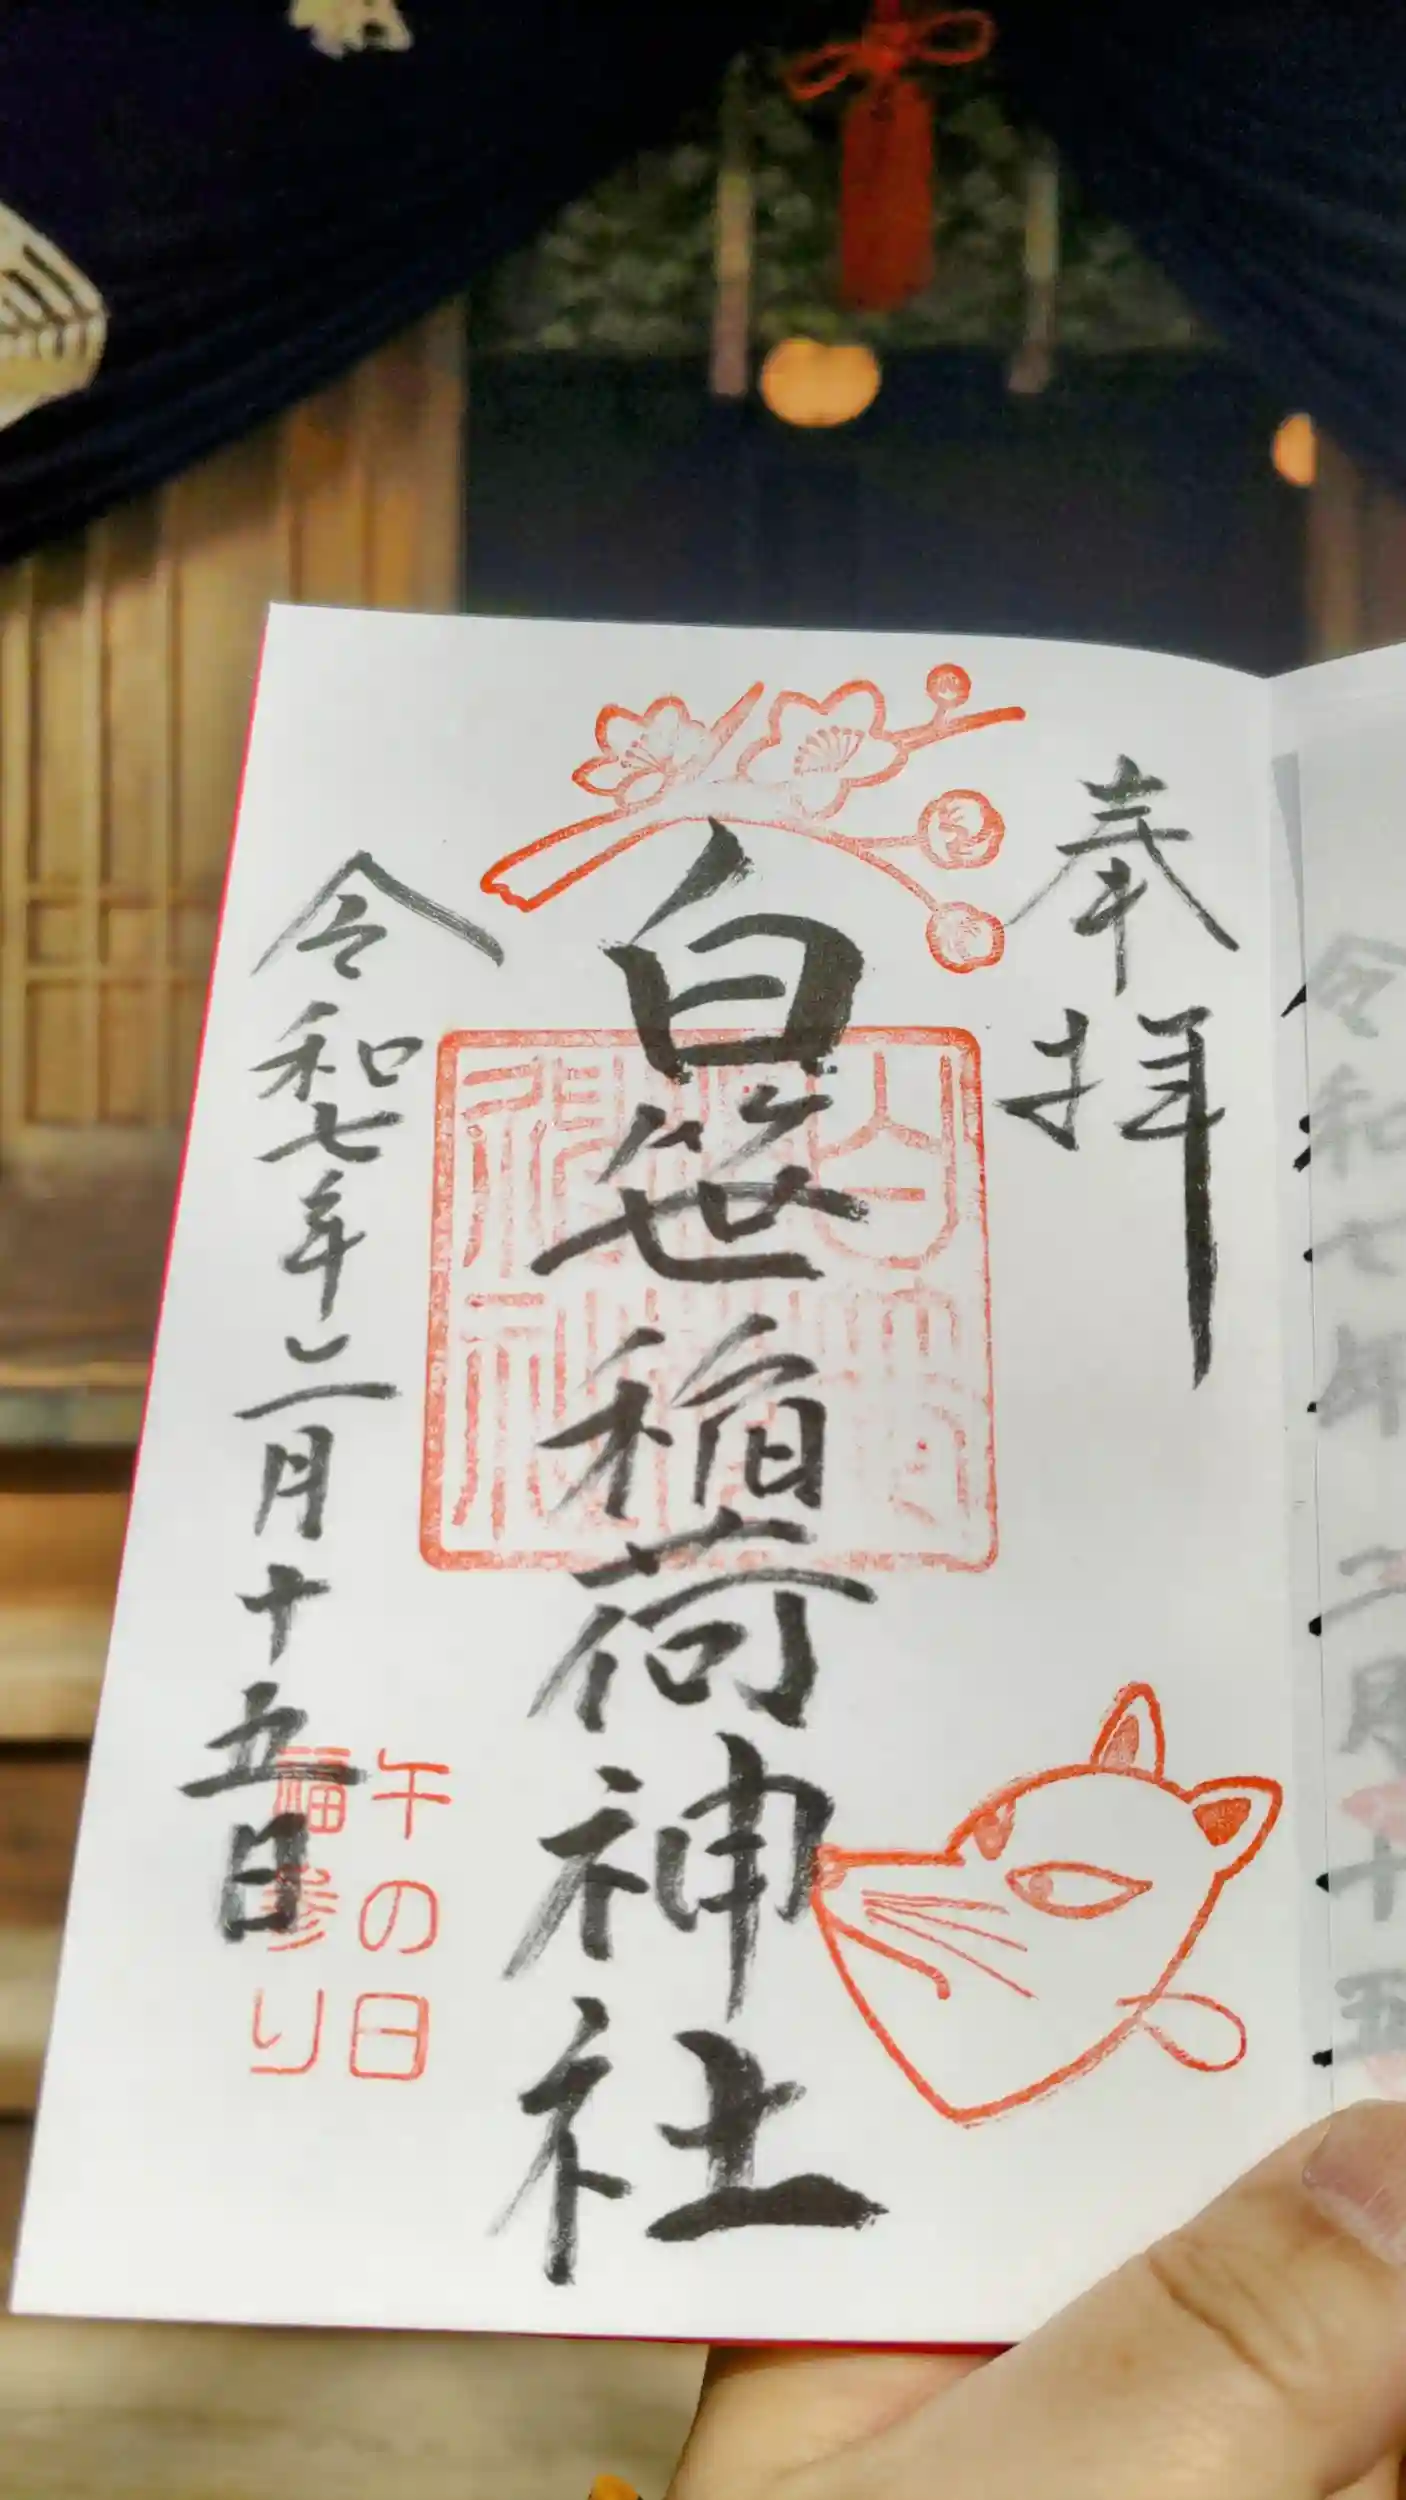 奉拝
白笹稲荷神社
令和七年二月十五日
午の日
福参り